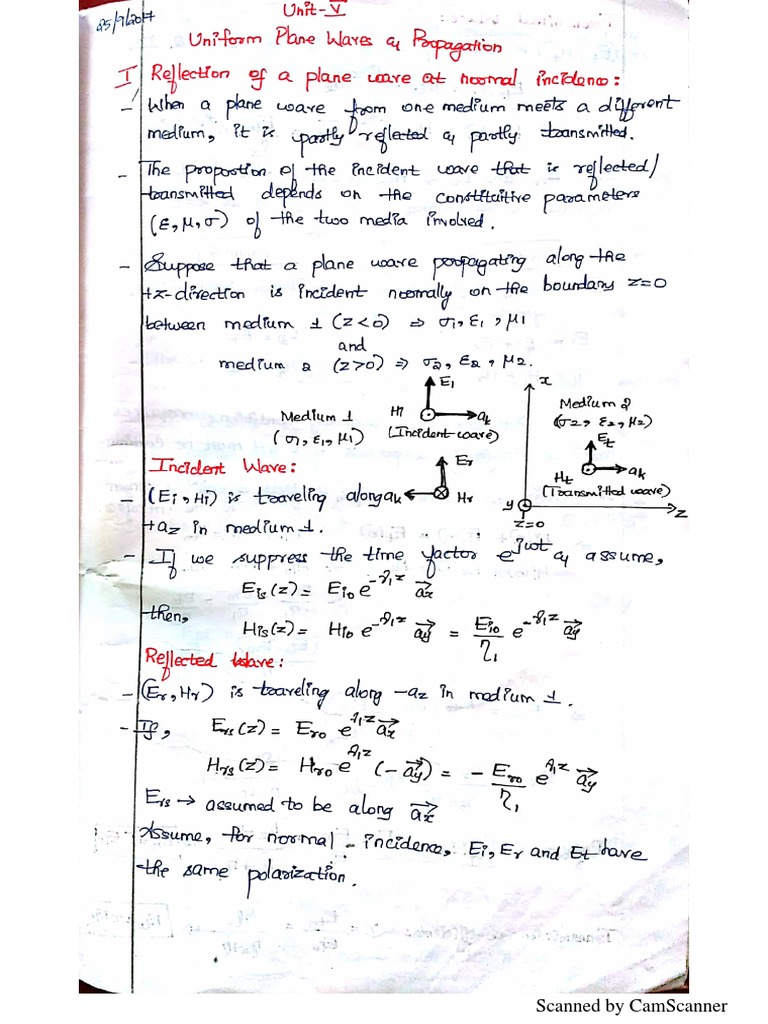 25/9/2017
Unit-V
Uniform Plane Waves & Propagation
I Reflection of a plane wave at normal incidence:
- When a plane wave from one medium meets a different
medium, it is partly reflected & partly transmitted.
- The proportion of the incident wave that is reflected/
transmitted depends on the constitutive parameters
(ε, μ, σ) of the two media involved.
- Suppose that a plane wave propagating along the
+z-direction is incident normally on the boundary z=0
between medium 1 (z<0) ⇒ σ1, ε1, μ1
and
medium 2 (z>0) ⇒ σ2, ε2, μ2.
Medium 1
(σ1, ε1, μ1)
Ei
Hi
ak
(Incident wave)
x
Medium 2
(σ2, ε2, μ2)
Et
Ht
ak
(Transmitted wave)
Er
ak
Hr
y
z
z=0
Incident Wave:
- (Ei, Hi) is traveling along
+az in medium 1.
- If we suppress the time factor e^jωt & assume,
Eis(z) = Eio e^-γ1z ax
then,
His(z) = Hio e^-γ1z ay = Eio/η1 e^-γ1z ay
Reflected Wave:
- (Er, Hr) is traveling along -az in medium 1.
- If, Ers(z) = Ero e^γ1z ax
Hrs(z) = Hro e^γ1z (-ay) = - Ero/η1 e^γ1z ay
Ers → assumed to be along ax
Assume, for normal - incidence, Ei, Er and Et have
the same polarization.
Scanned by CamScanner